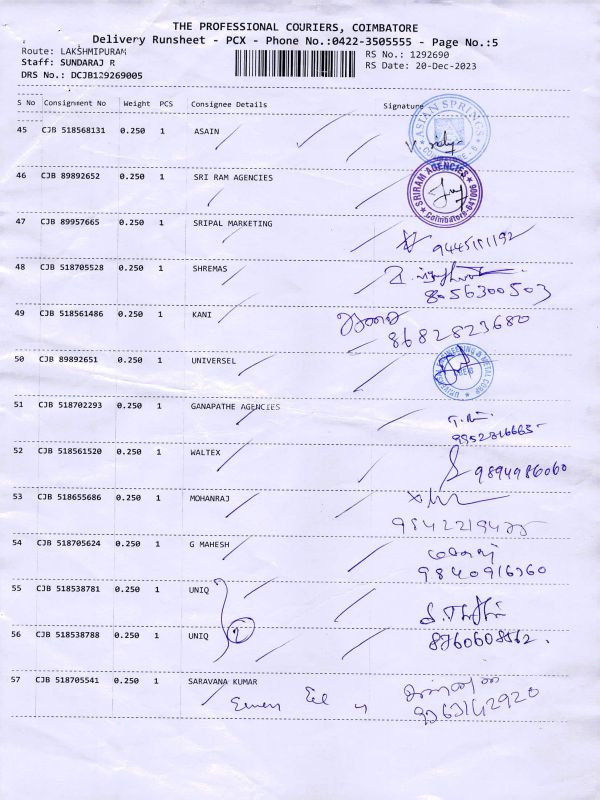 THE PROFESSIONAL COURIERS, COIMBATORE
Delivery Runsheet - PCX - Phone No.:0422-3505555 - Page No.:5
Route: LAKSHMIPURAM
RS No.: 1292690
Staff: SUNDARAJ R
RS Date: 20-Dec-2023
DRS No.: DCJB129269005
S No Consignment No Weight PCS Consignee Details Signature
45 CJB 518568131 0.250 1 ASAIN
ASIAN SPRINGS
46 CJB 89892652 0.250 1 SRI RAM AGENCIES
SRIRAM AGENCIES
Coimbatore-641006
47 CJB 89957665 0.250 1 SRIPAL MARKETING
9445151192
48 CJB 518705528 0.250 1 SHREMAS
8056300503
49 CJB 518561486 0.250 1 KANI
8682823680
50 CJB 89892651 0.250 1 UNIVERSEL
51 CJB 518702293 0.250 1 GANAPATHE AGENCIES
9952316665
52 CJB 518561520 0.250 1 WALTEX
9894986060
53 CJB 518655686 0.250 1 MOHANRAJ
54 CJB 518705624 0.250 1 G MAHESH
9840916360
55 CJB 518538781 0.250 1 UNIQ
56 CJB 518538788 0.250 1 UNIQ
8760608562.
57 CJB 518705541 0.250 1 SARAVANA KUMAR